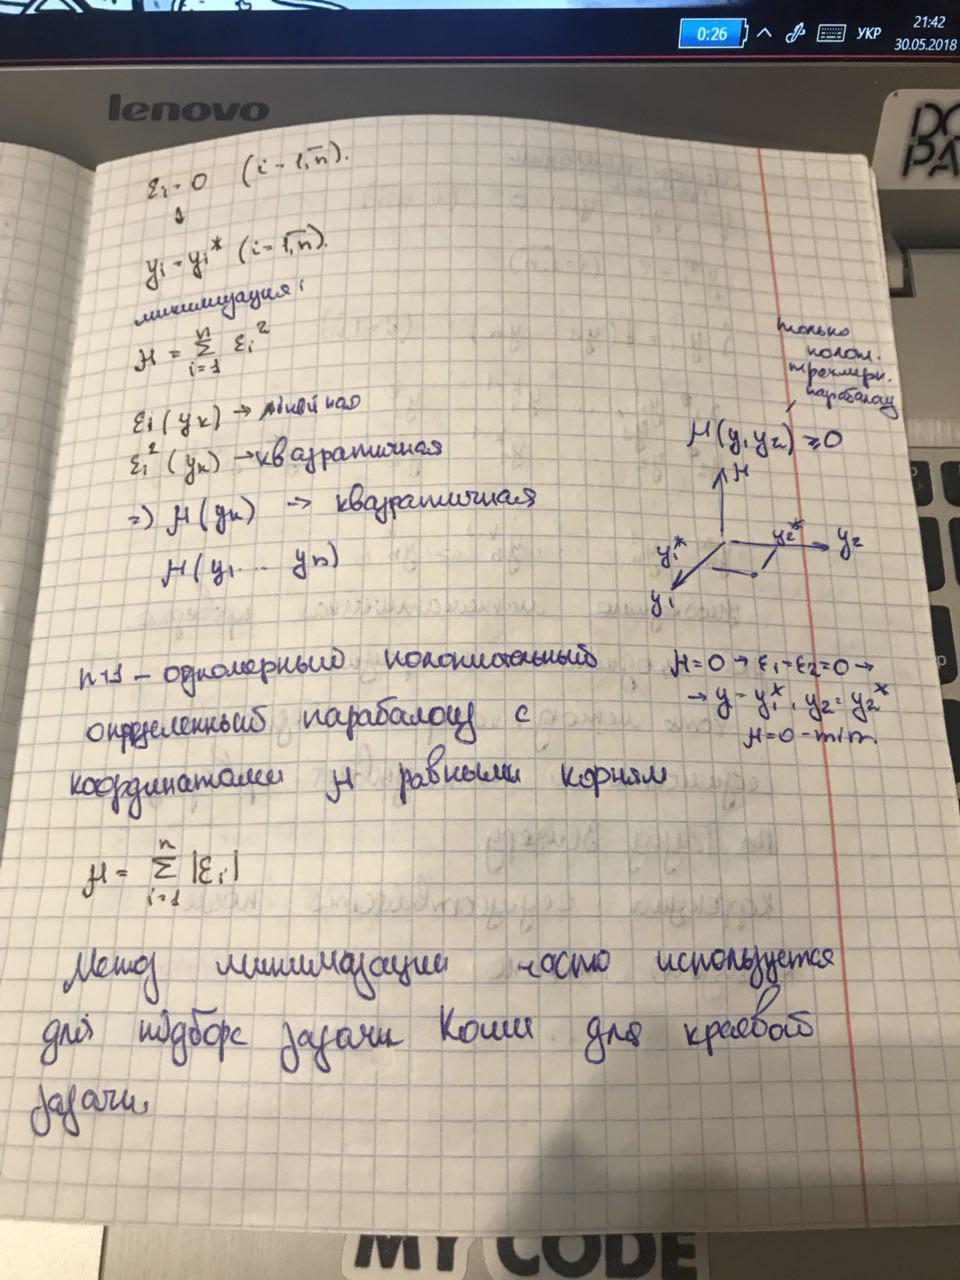 0:26
УКР
21:42
30.05.2018
lenovo
DO
PA
εi = 0 (i = 1,n).
↓
yi = yi* (i = 1,n).
минимизация:
μ = Σ εi²
n
i=1
εi(yk) → линейная
εi²(yk) → квадратичная
=> μ(yk) → квадратичная
μ(y1 ... yn)
только
полож.
трехмерн.
параболоид
μ(y1 y2) ≥ 0
μ
y1*
y2*
y2
y1
n+1 – одномерный положительный
определенный парабалоид с
координатами μ равными корням
μ=0 → ε1=ε2=0 →
→ y = y1*, y2 = y2*
μ=0 – min.
μ = Σ |εi|
n
i=1
Метод минимизации часто используется
для подбора задачи Коши для краевой
задачи.
MY CODE